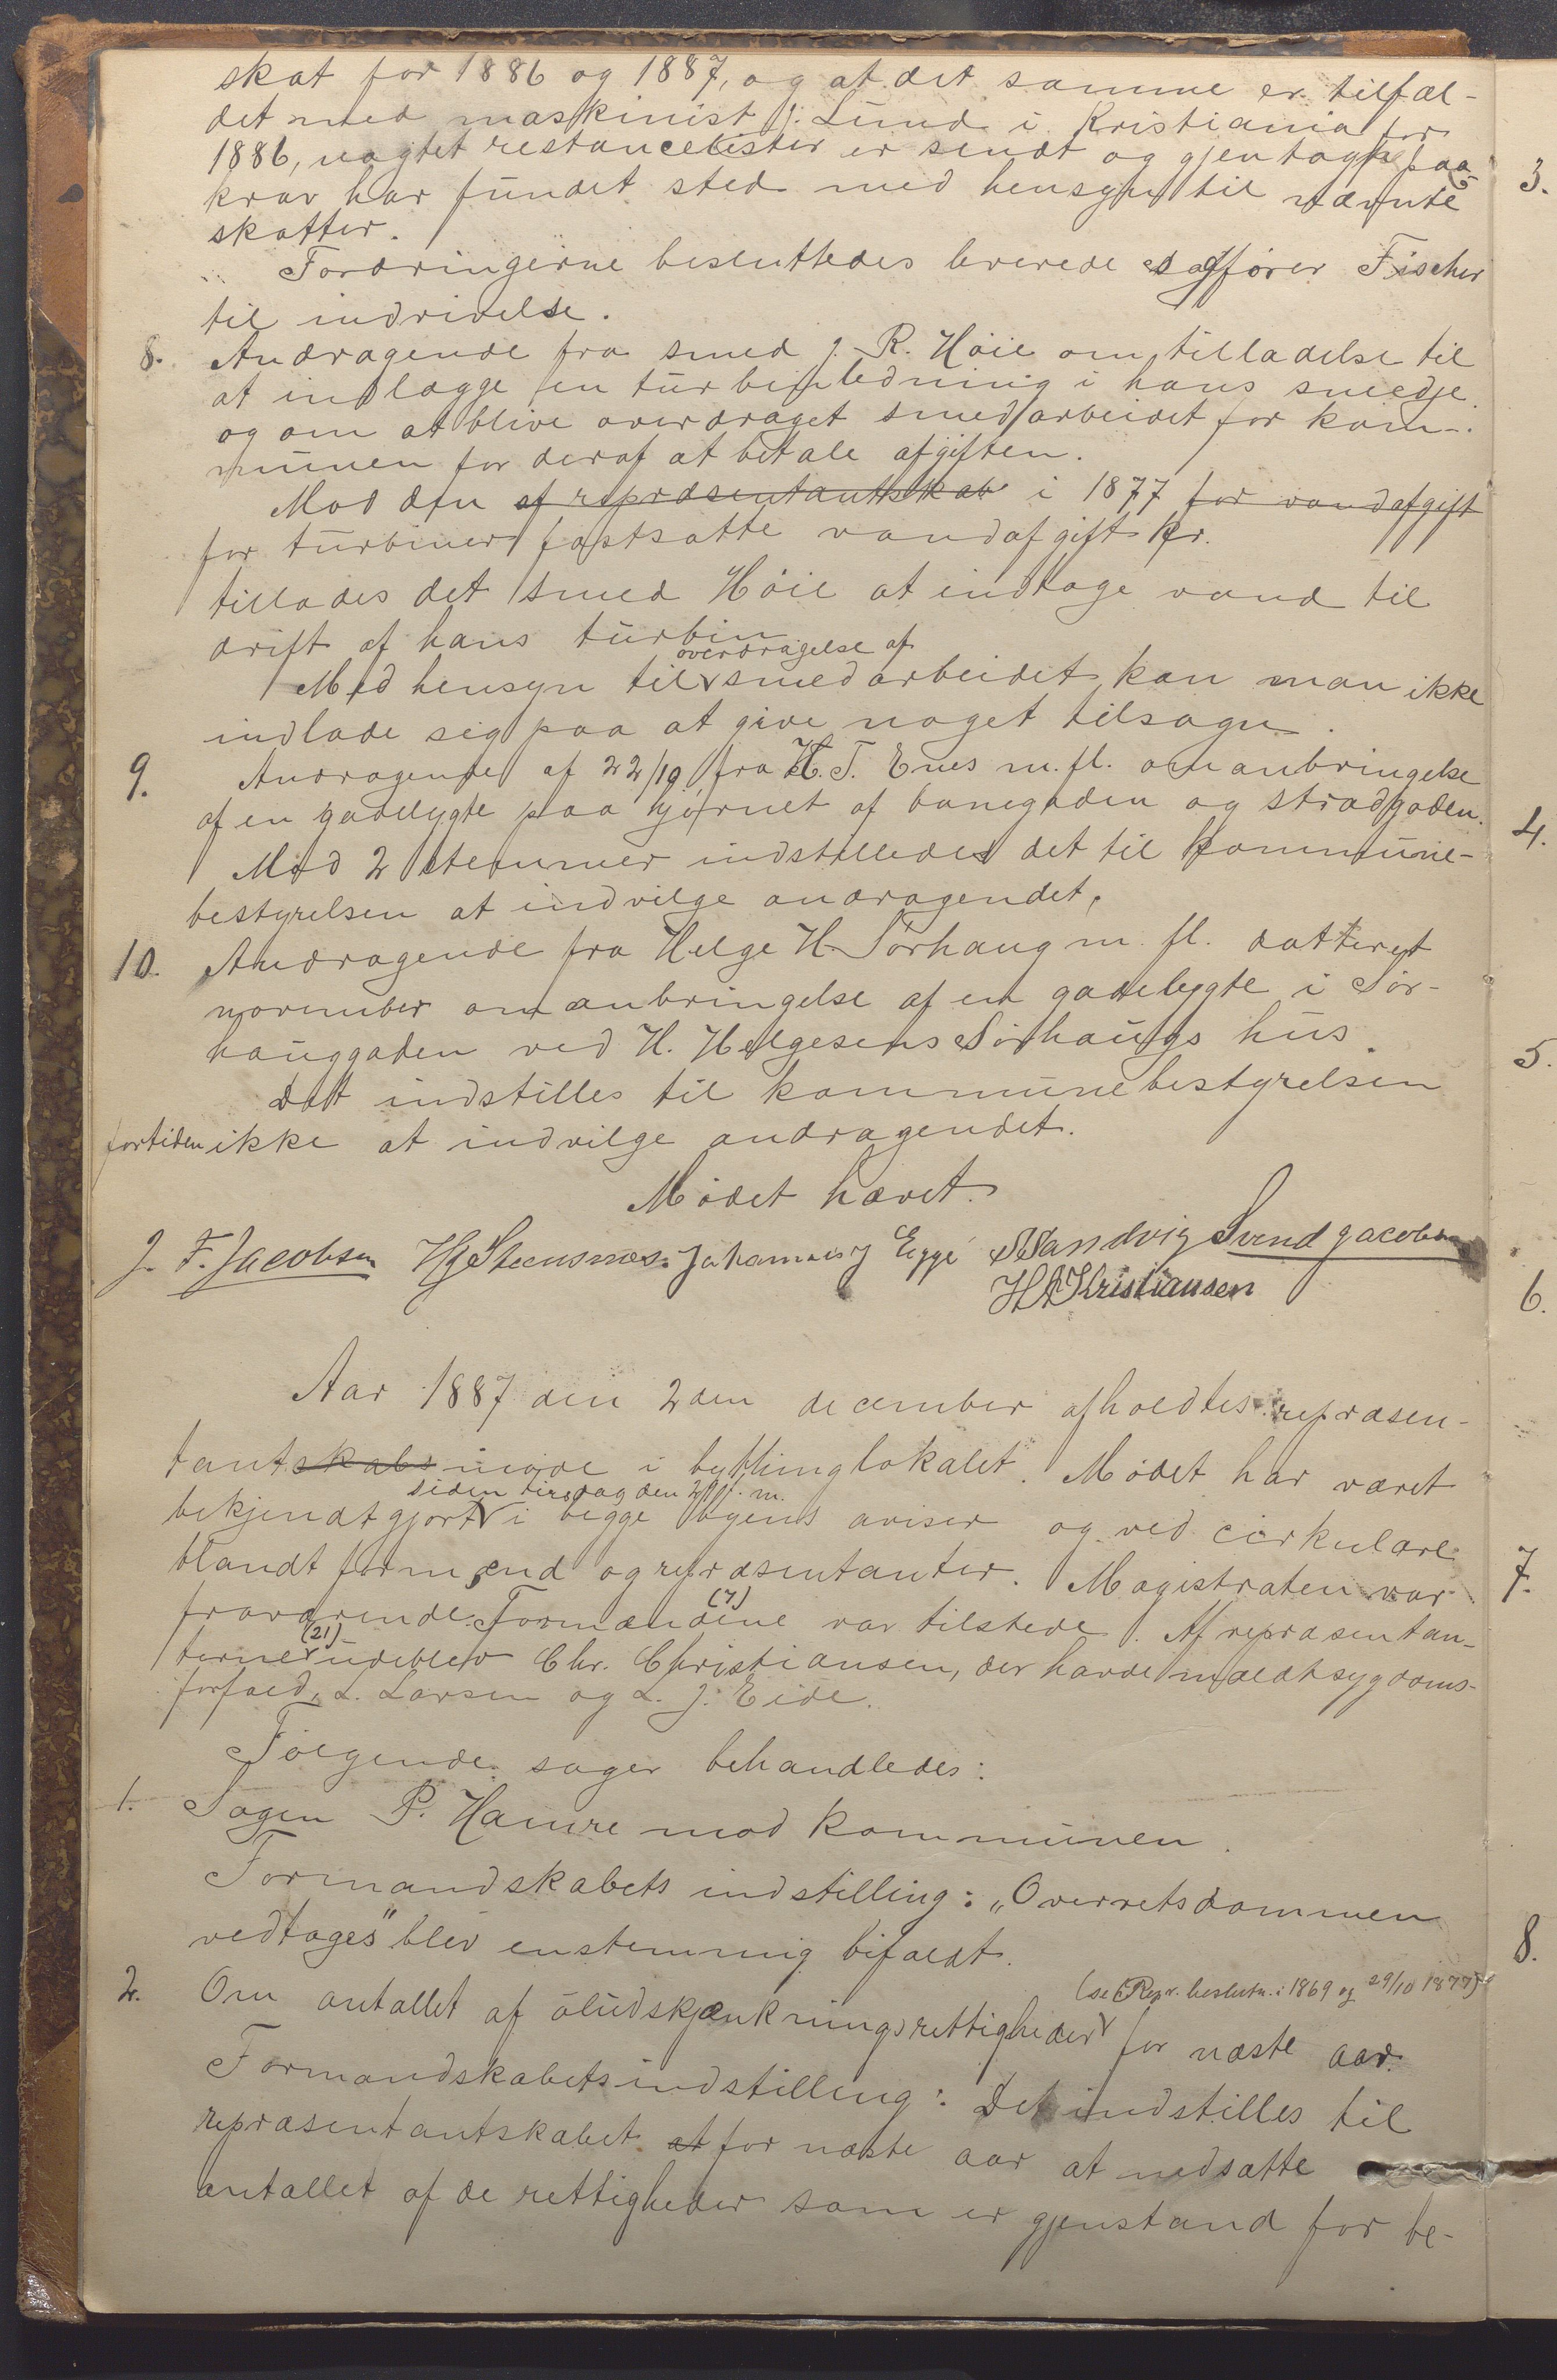 skat for 1886 og 1887, og at det samme er tilfæl-
det med maskinist J. Lund i Kristiania for
1886, uagtet restancelister er sendt og gjentagne paa-
krav har fundet sted med hensyn til nævnte
skatter.
Fordringerne besluttedes leverede sagfører Fischer
til indrivelse.
8. Andragende fra smed J. R. Höie om tilladelse til
at indlægge en turbinledning i hans smedje
og om at blive overdraget smedarbeidet for kom-
munen for deraf at betale afgiften.
Mod den af repræsentantskab i 1877 for vandafgift
for turbiner fastsatte vandafgift kr.
tillades det smed Höie at indtage vand til
drift af hans turbin
overdragelse af
Med hensyn til smedarbeidet kan man ikke
indlade sig paa at give noget tilsagn.
9. Andragende af 22/10 fra H. T. Enes m. fl. om anbringelse
af en gadelygte paa hjørnet af banegaden og strandgaden.
Mod 2 stemmer indstilledes det til kommune-
bestyrelsen at indvilge andragendet.
10. Andragende fra Helge H. Sørhaug m. fl. datteret
november om anbringelse af en gadelygte i Sør-
hauggaden ved H. Helgesens Sørhaugs hus.
Det indstilles til kommunebestyrelsen
fortiden ikke at indvilge andragendet.
Mödet hævet.
J. F. Jacobsen HGSteensnæs. Johannes J Egge SSandvig Svend Jacobsen
HAKristiansen
Aar 1887 den 2den december afholdtes repræsen-
tantskabs møde i bythinglokalet. Mödet har været
siden tirsdag den 29 f. m.
bekjendtgjort i begge byens aviser og ved cirkulære
blandt formænd og repræsentanter. Magistraten var
(7)
fraværende. Formændene var tilstede. Af repræsentan-
(21)
terne udeblev Chr. Christiansen, der havde meldt sygdoms-
forfald, L. Larsen og L. J. Eide.
Følgende sager behandledes:
1. Sagen P. Hamre mod kommunen.
Formandskabets indstilling: „Overretsdommen
vedtages" blev enstemmig bifaldt.
(se Repr. beslutn. i 1869 og 29/10 1877)
2. Om antallet af öludskjænkningsrettigheder for næste aar.
Formandskabets indstilling: Det indstilles til
repræsentantskabet at for næste aar at nedsætte
antallet af de rettigheder som er gjenstand for be-
3.
4.
5.
6.
7.
8.